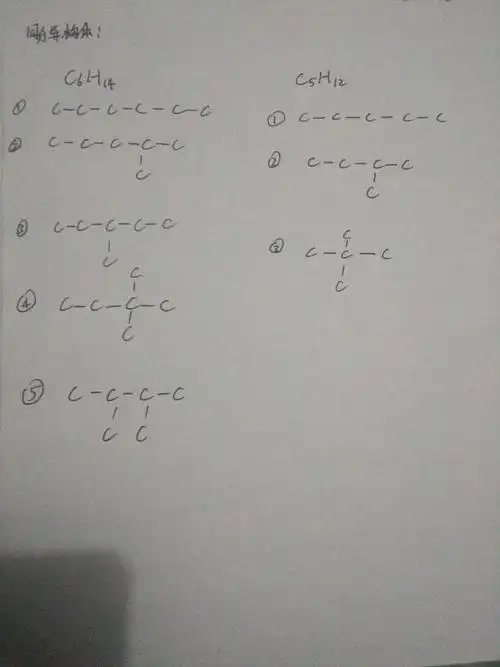 同分异构体:
C₆H₁₄
① C-C-C-C-C-C
② C-C-C-C-C
C
③ C-C-C-C-C
C
C
④ C-C-C-C
C
⑤ C-C-C-C
C C
C₅H₁₂
① C-C-C-C-C
② C-C-C-C
C
C
③ C-C-C
C